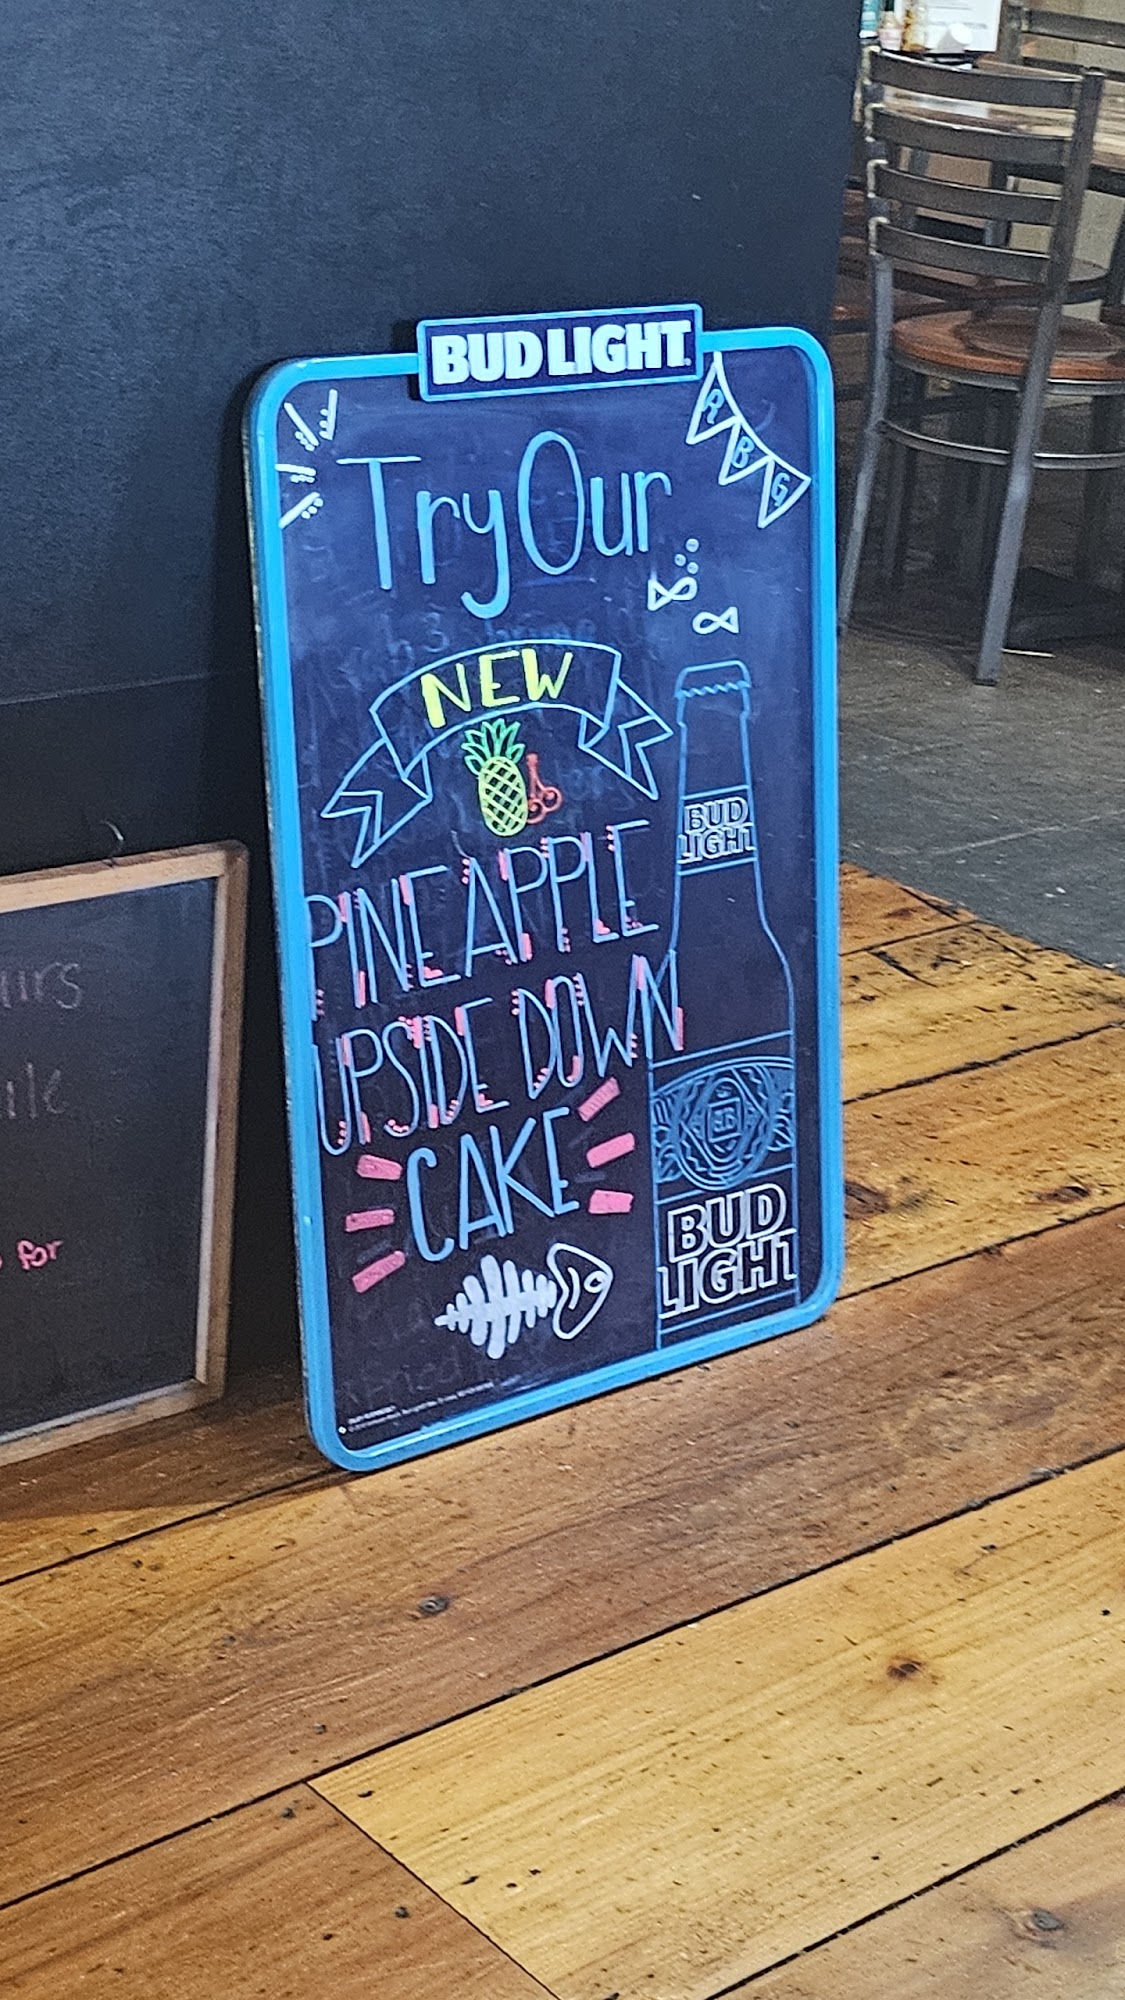 BUD LIGHT
R B G
Try Our
NEW
PINEAPPLE
UPSIDE DOWN
CAKE
BUD
LIGHT
BUD
LIGHT
for